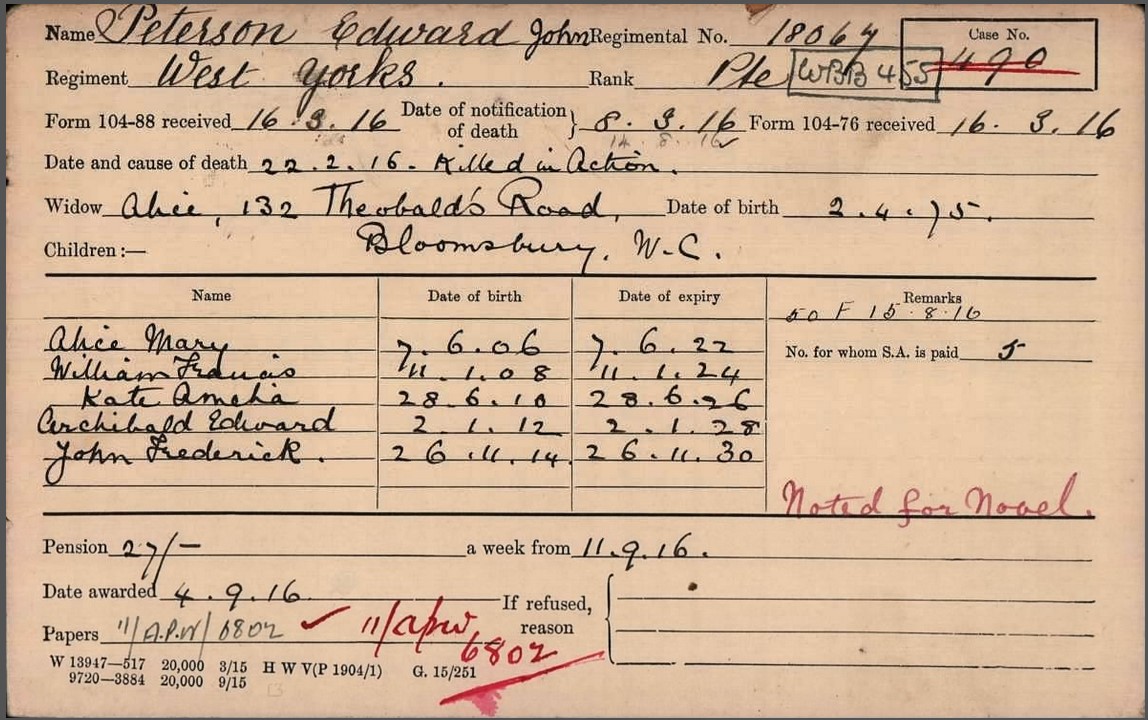 Name Peterson Edward John Regimental No. 18067 Case No.
Regiment West Yorks. Rank Pte WBB 455 490
Form 104-88 received 16.3.16 Date of notification of death } 8.3.16 Form 104-76 received 16.3.16
14.8.16
Date and cause of death 22.2.16. Killed in Action.
Widow Alice, 132 Theobald's Road, Date of birth 2.4.75.
Children :— Bloomsbury, W.C.
Name Date of birth Date of expiry Remarks
50 F 15.8.16
Alice Mary 7.6.06 7.6.22 No. for whom S.A. is paid 5
William Francis 11.1.08 11.1.24
Kate Amelia 28.6.10 28.6.26
Archibald Edward 2.1.12 2.1.28
John Frederick. 26.11.14. 26.11.30
Noted for Novel.
Pension 27/- a week from 11.9.16.
Date awarded 4.9.16. If refused, reason
Papers 11/A.P.W/6802 11/apw 6802
W 13947—517 20,000 3/15 H W V(P 1904/1) G. 15/251
9720—3884 20,000 9/15
13